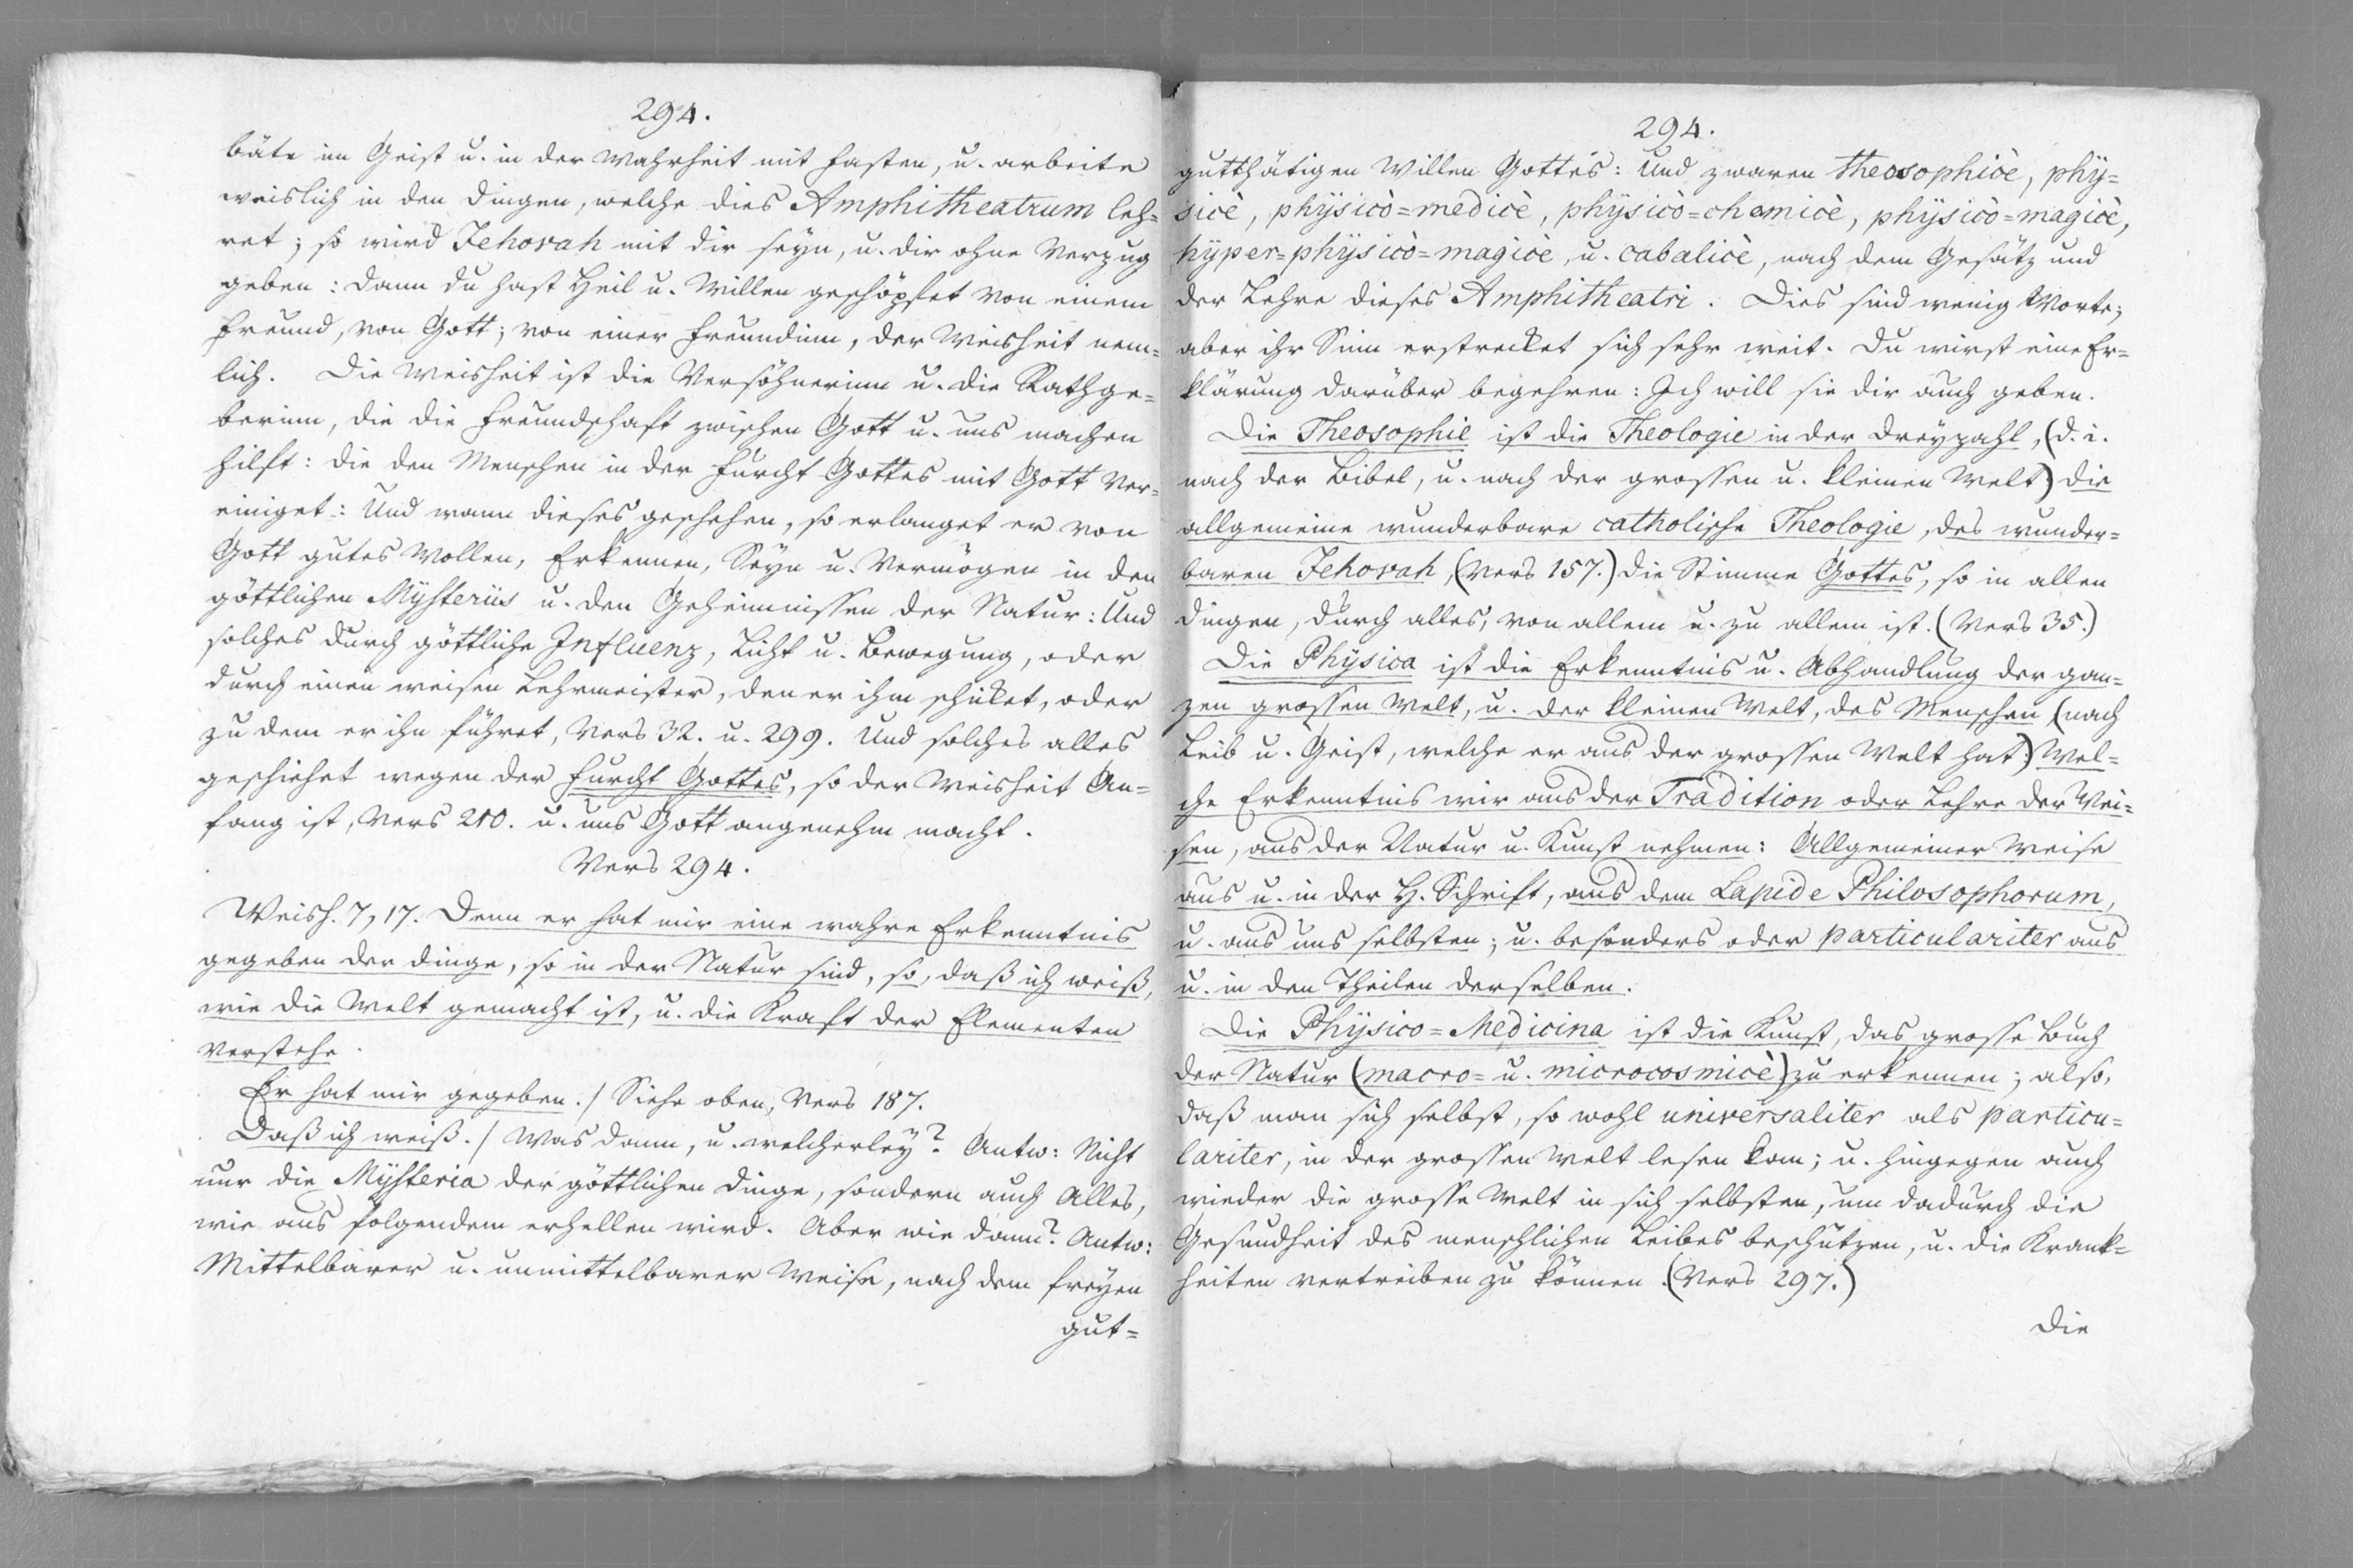 294.
bäte im Geist u. in der Wahrheit mit Fasten, u. arbeite
weislich in den Dingen, welche dies Amphitheatrum leh=
ret; so wird Jehovah mit dir seyn, u. dir ohne Verzug
geben: Dann du hast Heil u. Willen geschöpfet von einem
Freund, von Gott; von einer Freundinn, der Weisheit nem=
lich. Die Weisheit ist die Versöhnerinn u. die Rathge=
berinn, die die Freundschaft zwischen Gott u. uns machen
hilft: die den Menschen in der Furcht Gottes mit Gott ver=
einiget: Und wann dieses geschehen, so erlanget er von
Gott gutes Wollen, Erkennen, Seyn u. Vermögen in den
göttlichen Mÿsteriis u. den Geheimnissen der Natur: Und
solches durch göttliche Influenz, Licht u. Bewegung, oder
durch einen weisen Lehrmeister, den er ihm schicket, oder
zu dem er ihn führet, Vers 32. u. 299. Und solches alles
geschiehet wegen der Furcht Gottes, so der Weisheit An=
fang ist, Vers 210. u. uns Gott angenehm macht.
Vers 294.
Weish. 7, 17. Denn er hat mir eine wahre Erkenntnis
gegeben der Dinge, so in der Natur sind, so, daß ich weiß,
wie die Welt gemacht ist, u. die Kraft der Elementen
verstehe.
Er hat mir gegeben./ Siehe oben, Vers 187.
Daß ich weiß./ Was dann, u. welcherleÿ? Antw: Nicht
nur die Mÿsteria der göttlichen Dinge, sondern auch Alles,
wie aus folgendem erhellen wird. Aber wie dann? Antw:
Mittelbarer u. unmittelbarer Weise, nach dem freÿen
gut=
294.
gutthätigen Willen Gottes: Und zwaren theosophicè, phÿ=
sicè, phÿsicò=medicè, phÿsicò=chemicè, phÿsicò=magicè,
hÿper=phÿsicò=magicè, u. cabalicè, nach dem Gesätz und
der Lehre dieses Amphitheatri. Dies sind wenig Worte;
aber ihr Sinn erstrecket sich sehr weit. Du wirst eine Er=
klärung darüber begehren: Ich will sie dir auch geben.
Die Theosophie ist die Theologie in der Dreÿzahl, (d. i.
nach der Bibel, u. nach der grossen u. kleinen Welt) die
allgemeine wunderbare catholische Theologie, des wunder=
baren Jehovah, (Vers 157.) die Stimme Gottes, so in allen
Dingen, durch alles, von allem u. zu allem ist. (Vers 35.)
Die Phÿsica ist die Erkenntnis u. Abhandlung der gan=
zen grossen Welt, u. der kleinen Welt, des Menschen (nach
Leib u. Geist, welche er aus der grossen Welt hat) Wel=
che Erkenntnis wir aus der Tradition oder Lehre der Wei=
sen, aus der Natur u. Kunst nehmen: Allgemeiner Weise
aus u. in der H. Schrift, aus dem Lapide Philosophorum,
u. aus uns selbsten; u. besonders oder particulariter aus
u. in den Theilen derselben.
Die Phÿsico=Medicina ist die Kunst, das grosse Buch
der Natur (macro= u. microcosmicè) zu erkennen; also,
daß man sich selbst, so wohl universaliter als particu=
lariter, in der grossen Welt lesen kan; u. hingegen auch
wieder die grosse Welt in sich selbsten, um dadurch die
Gesundheit des menschlichen Leibes beschützen, u. die Krank=
heiten vertreiben zu können. (Vers 297.)
Die